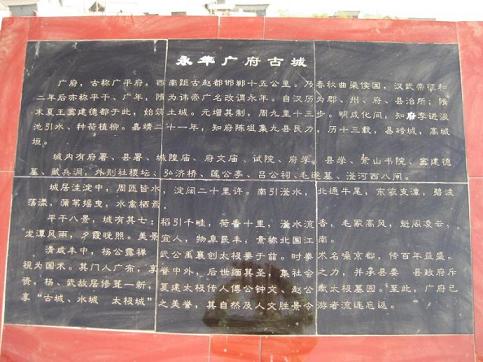 永年广府古城
广府，古称广平府。西南距古赵都邯郸十五公里。乃春秋曲梁侯国，汉武帝征和
二年后亦称平干、广年，隋为讳帝广名改谓永年。自汉历为郡、州、府、县治所；隋
末夏王窦建德都于此，始筑土城。元增其制，周九里十三步。明成化间，知府李进
池引水，种荷植柳。嘉靖二十一年，知府陈俎集九县民力，历十三载，易砖城，高城
垣。
城内有府署、县署、城隍庙、府文庙、试院、府学、县学、紫山书院、窦建德
墓、藏兵洞，外则社稷坛、弘济桥、莲公亭、吕公祠、毛遂墓、滏河西八闸。
城居洼淀中，周匝皆水，淀阔二十里许。南引滏水，北连牛尾，东
荡漾，蒲苇摇曳，水禽栖
平干八景，城有其七：稻引千畦，荷香十里，滏水流香，毛冢高风，
龙潭风雨，夕霞晚照。美景宜人，物阜民丰，素称北国江南。
清咸丰中，杨公露禅武公禹襄创太极拳于前，时拳术名噪京都，传百年益盛。
视为国术。其门人广布，享誉中外，后世缅其圣，集社会之力，并承县委 县政府斥
资，杨、武故居修葺一新，复建太极传人傅公钟文、赵公 太极墓园。至此，广府已
享“古城、水城 太极城”之美誉，其自然及人文胜景令游者流连忘返。